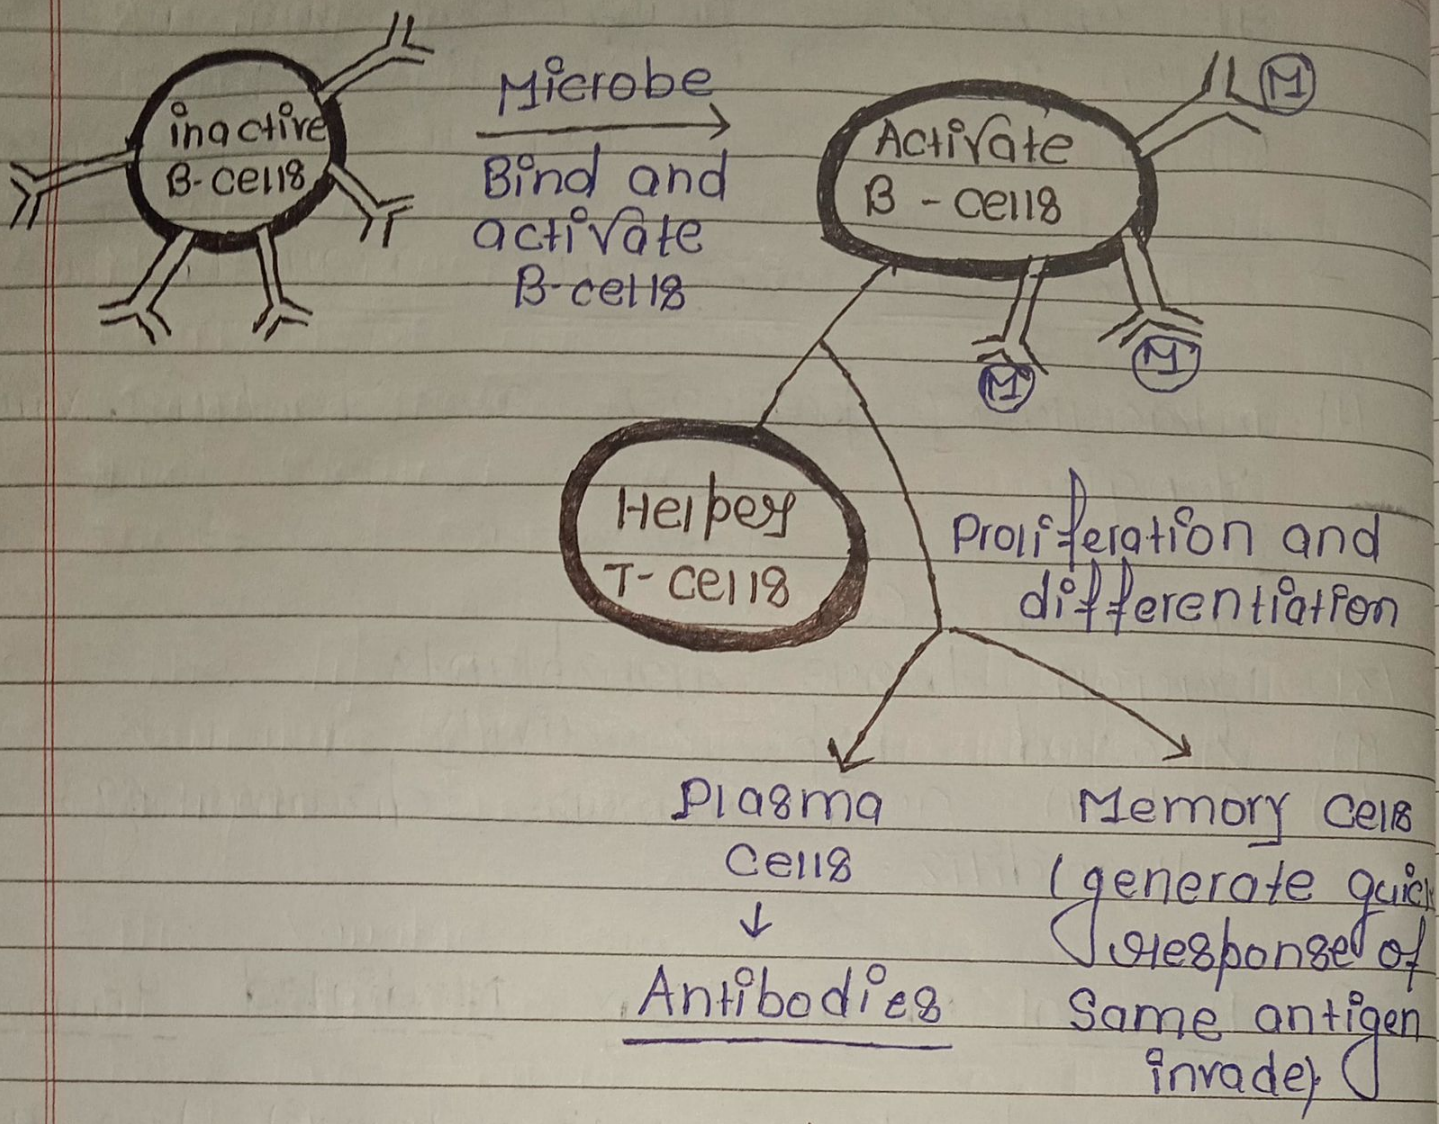 inactive
B-cells
Microbe
Bind and
activate
B-cells
Activate
B - cells
M
M
M
Helper
T- cells
Proliferation and
differentiation
Plasma
cells
↓
Antibodies
Memory cells
(generate quick
response of
Same antigen
invade)